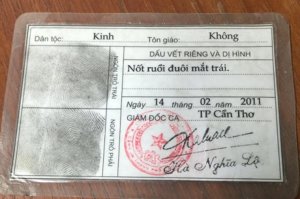 Dân tộc: Kinh Tôn giáo: Không
DẤU VẾT RIÊNG VÀ DỊ HÌNH
Nốt ruồi đuôi mắt trái.
NGÓN TRỎ TRÁI
Ngày 14 tháng 02 năm 2011
GIÁM ĐỐC CA TP Cần Thơ
NGÓN TRỎ PHẢI
Hà Nghĩa Lộ